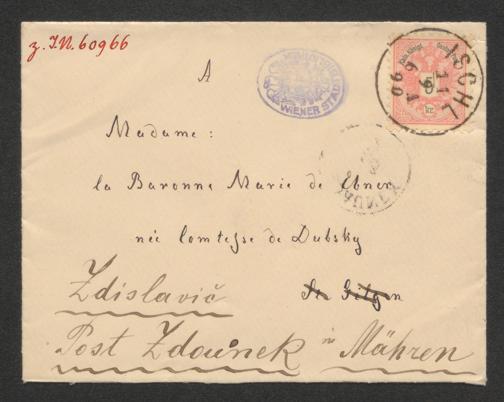 z. I.N. 60966
WIENER STADT
ISCHL
11
9
90
5
kr.
A
Madame:
la Baronne Marie de Ebner
née Comtesse de Dubsky
St Gilgen
Zdislavič
Post Zdounek in Mähren